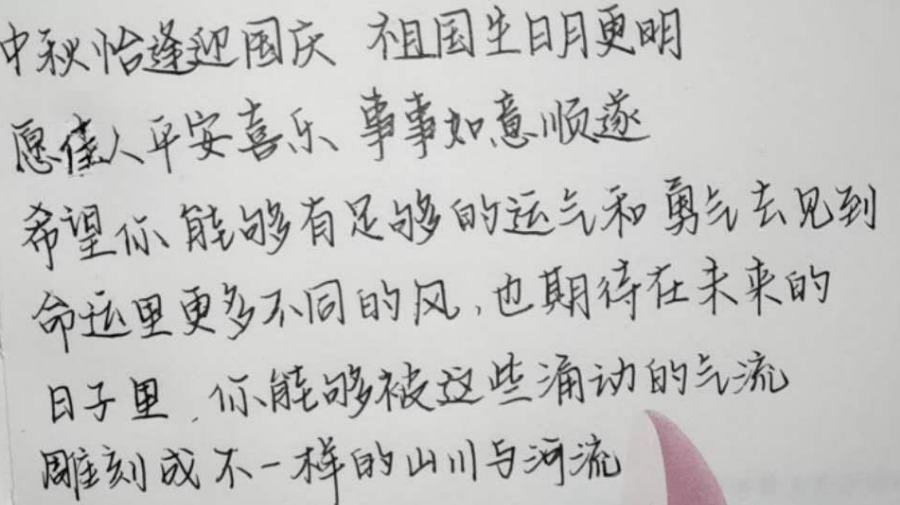 中秋怡逢迎国庆 祖国生日月更明
愿佳人平安喜乐 事事如意顺遂
希望你能够有足够的运气和勇气去见到
命运里更多不同的风，也期待在未来的
日子里，你能够被这些涌动的气流
雕刻成不一样的山川与河流